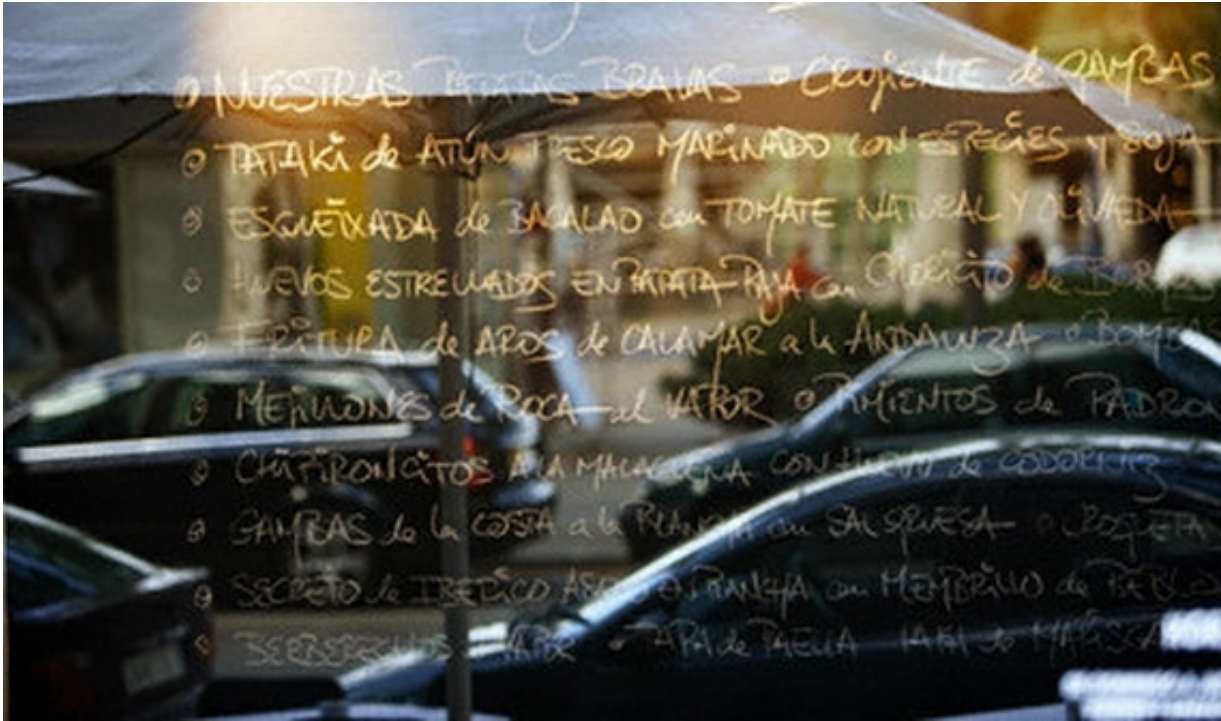 NUESTRAS PATATAS BRAVAS CRUJIENTE de GAMBAS
TATAKI de ATÚN FRESCO MARINADO CON ESPECIES Y SOJA
ESQUEIXADA de BACALAO con TOMATE NATURAL Y OLIVADA
HUEVOS ESTRELLADOS EN PATATA PAJA con CHORICITO de
FRITURA de AROS de CALAMAR a la ANDALUZA BOMBAS
MEJILLONES de ROCA al VAPOR PIMIENTOS de PADRON
CHIPIRONCITOS A LA MALAGUEÑA CON HUEVO de CODORNIZ
GAMBAS de la COSTA a la PLANCHA con SALSA CROQUETA
SECRETO de IBERICO A LA PLANCHA con MEMBRILLO de
BERBERECHOS VAPOR TAPA de PAELLA